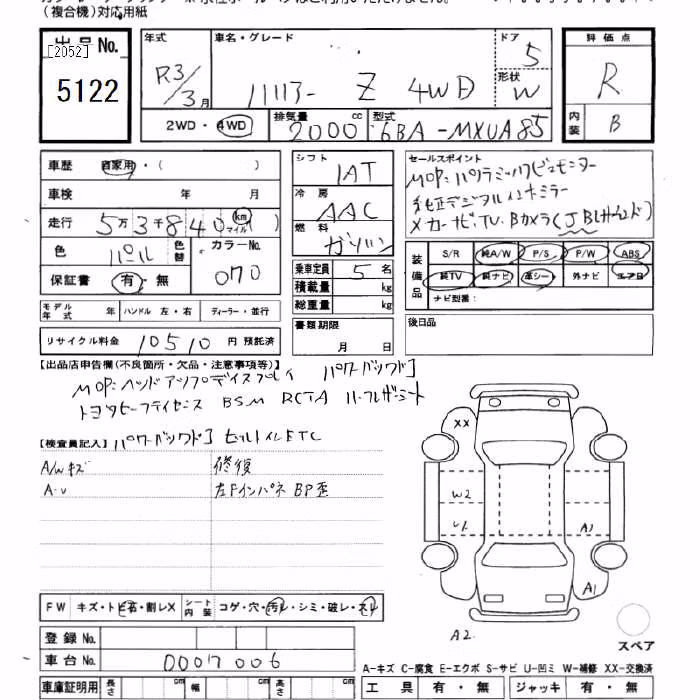 (複合機)対応用紙
出品No.
[2052]
5122
年式 R3/3月
車名・グレード ハリアー Z 4WD
ドア 5
形状 W
評価点 R
内装 B
2WD・4WD
排気量 2000 cc
型式 6BA-MXUA85
車歴 自家用・( )
車検 年 月
走行 5万3千840 km マイル
色 パール 色替
カラーNo. 070
保証書 有・無
シフト IAT
冷房 AAC
燃料 ガソリン
乗車定員 5名
積載量 kg
総重量 kg
セールスポイント
MOP:パノラミックビューモニター
純正デジタルインナーミラー
メーカーナビ、TV、Bカメラ(JBLサウンド)
装備品
S/R 純A/W P/S P/W ABS
純TV 純ナビ 革シート 外ナビ エアB
ナビ型番:
モデル年式 年 ハンドル 左・右 ディーラー・並行
リサイクル料金 10510 円 預託済
書類期限 月 日
後日品
【出品店申告欄(不良箇所・欠品・注意事項等)】
MOP:ヘッドアップディスプレイ パワーバックドア
トヨタセーフティセンス BSM RCTA ハーフレザーシート
【検査員記入】 パワーバックドア ビルトインETC
A/Wキズ
A・U
修復
左Fインパネ BP歪
XX
W2
U1
A1
A1
A2
スペア
FW キズ・トビ石・割レX
シート内装 コゲ・穴・汚レ・シミ・破レ・スレ
登録No.
車台No. 0007006
A-キズ C-腐食 E-エクボ S-サビ U-凹ミ W-補修 XX-交換済
車庫証明用 長さ cm 幅 cm 高さ cm
工具 有・無 ジャッキ 有・無